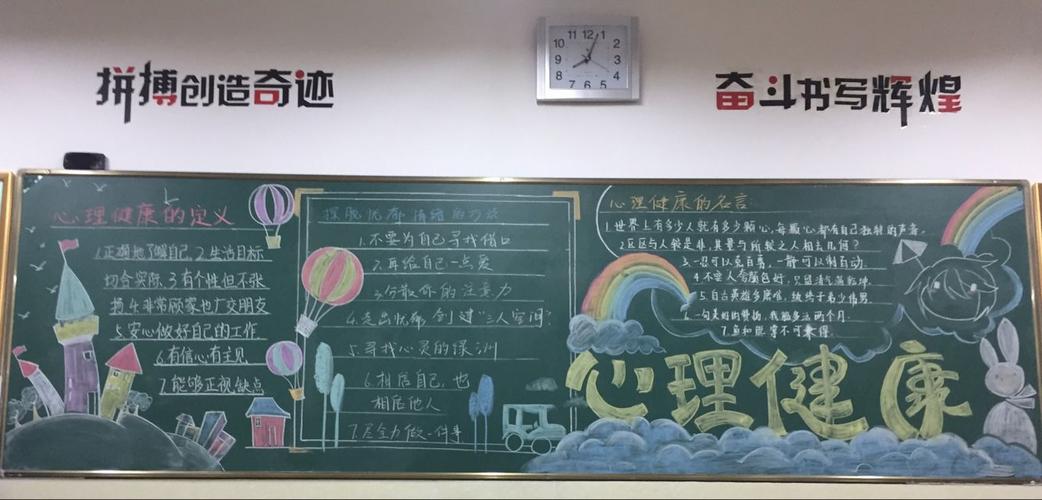 拼搏创造奇迹
11 12 1
10 2
9 3
8 4
7 6 5
奋斗书写辉煌
心理健康的定义
1.正确地了解自己,2.生活目标
切合实际.3.有个性但不张
扬4.非常顾家也广交朋友
5.安心做好自己的工作
6.有信心有主见
7.能够正视缺点
摆脱忧郁情绪的方法
1.不要为自己寻找借口
2.再给自己一点爱
3.分散你的注意力
4.走出忧郁创建"三人空间"
5.寻找心灵的绿洲
6.相信自己,也
相信他人
7.尽全力做一件事
心理健康的名言:
1.世界上有多少人就有多少颗心,每颗心都有自己独特的声音。
2.区区与人较是非,其量与所较之人相去几何?
3.一忍可以克百勇,一静可以制百动。
4.不要人夸颜色好,只留清气满乾坤。
5.自古英雄多磨难,
6.一句美好的赞扬,我能多活两个月。
7.鱼和熊掌不可兼得。
心理健康